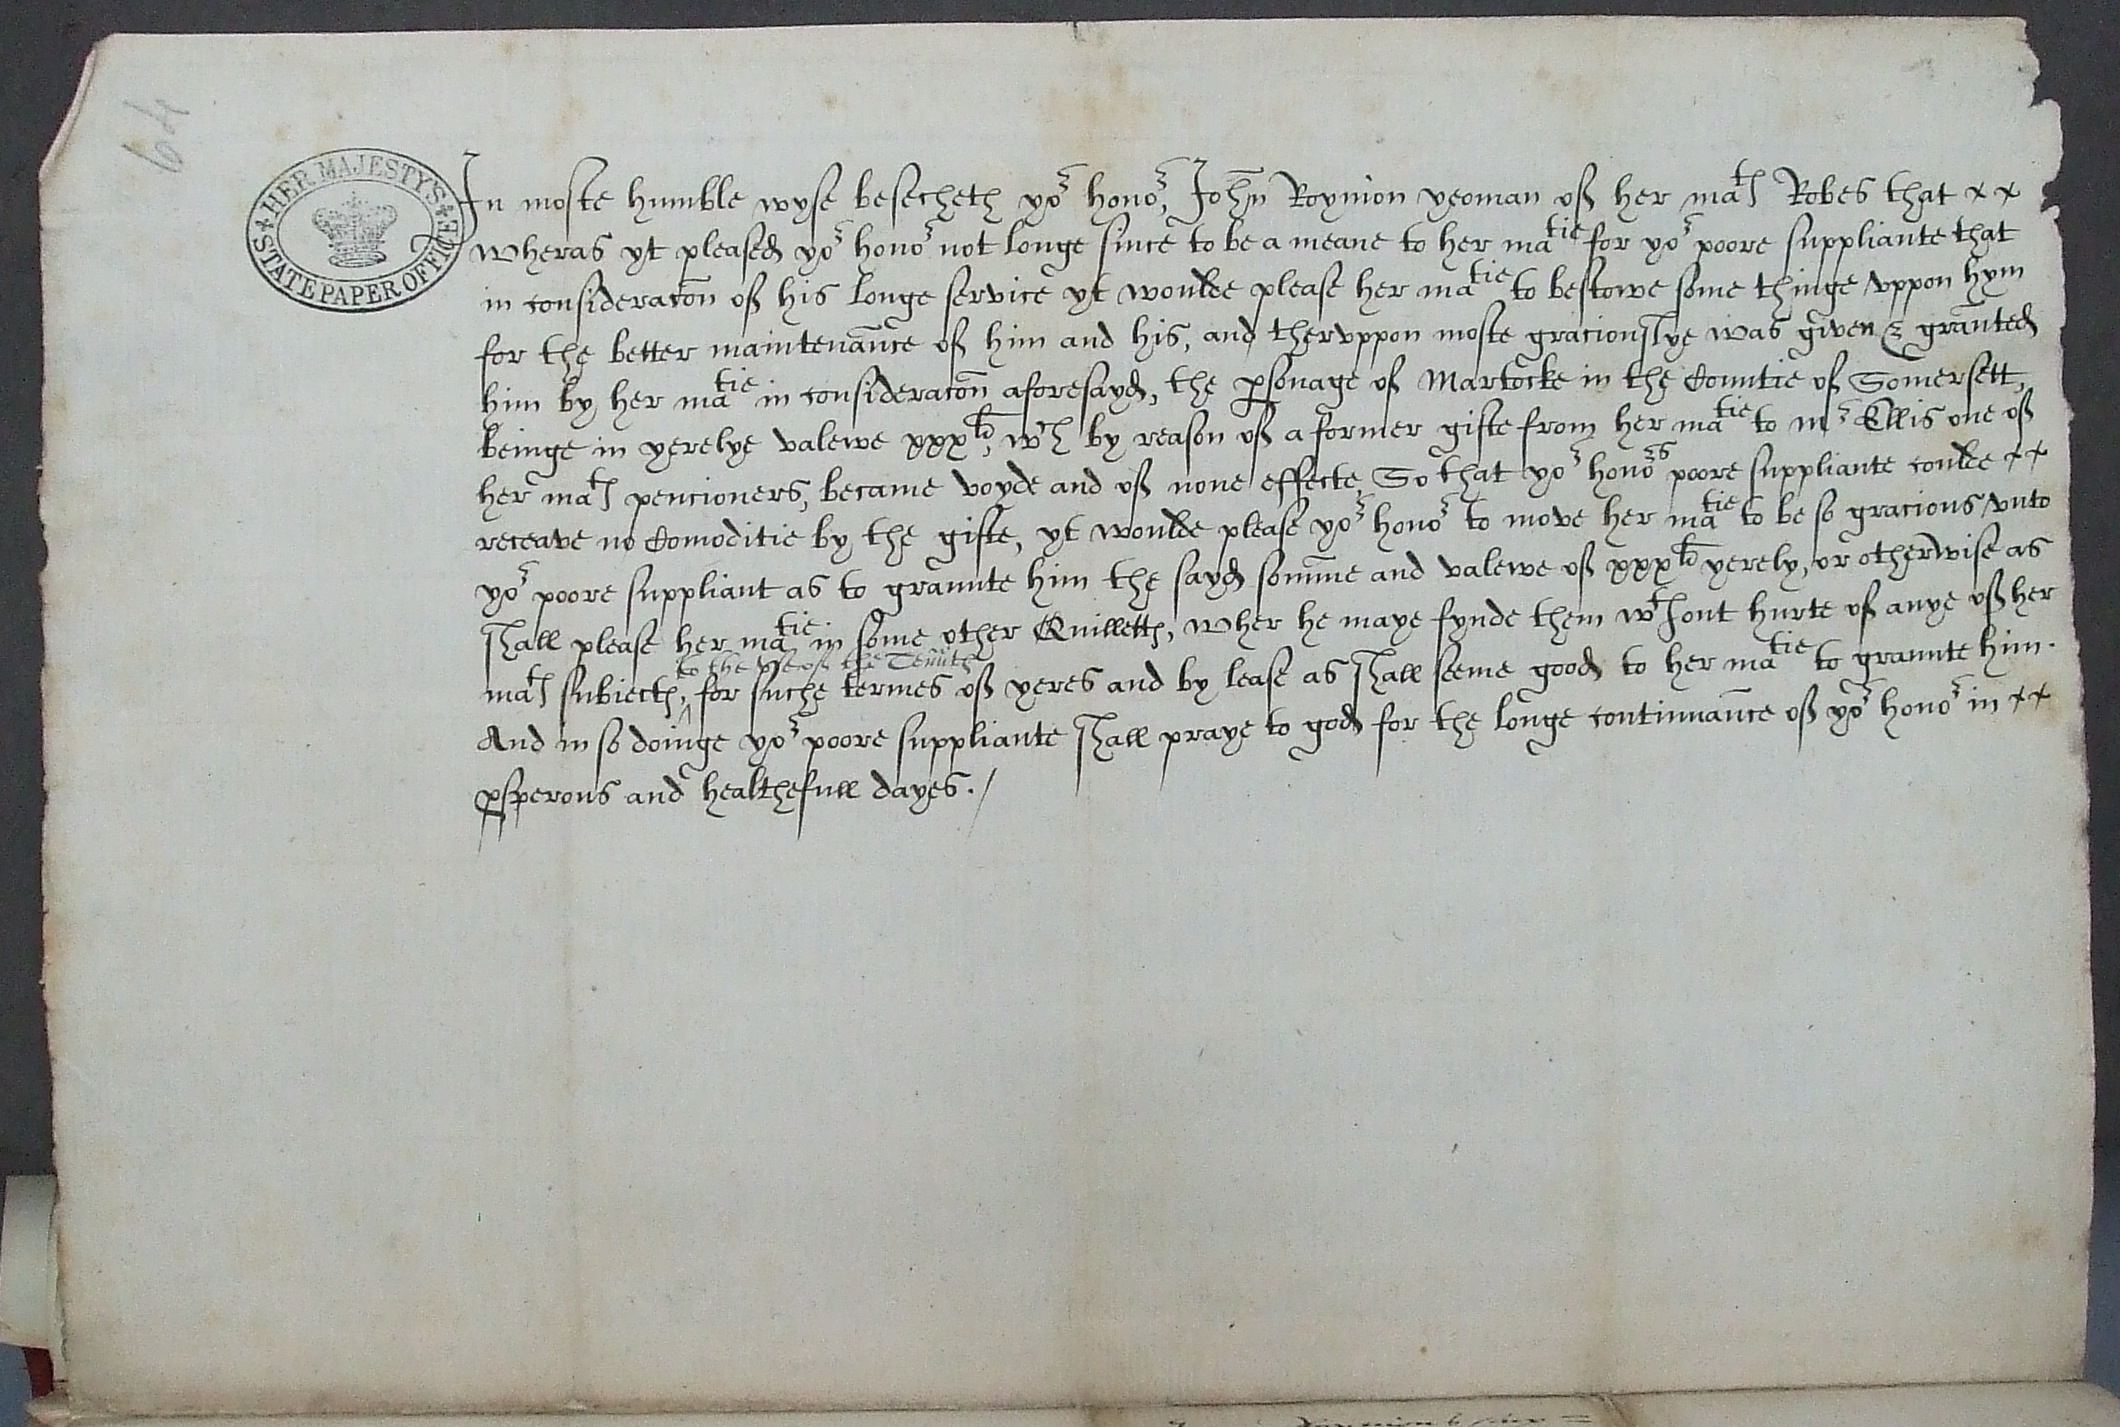 64
HER MAJESTY'S STATE PAPER OFFICE
In moste humble wyse besecheth yor honor, John Roynion yeoman of her mats Robes that xx
wheras yt pleased yor honor not longe since to be a meane to her matie for yor poore suppliante that
in consideracon of his longe service yt woulde please her matie to bestowe some thinge vppon hym
for the better maintenance of him and his, and thervppon moste graciouslye was given & granted
him by her matie in consideracon aforesayd, the psonage of Martocke in the Countie of Somersett,
beinge in yerelye valewe xxxli, wch by reason of a former gifte from her matie to mr Ellis one of
her mats pencioners, became voyde and of none effecte, So that yor honors poore suppliante coulde xx
receave no Comoditie by the gifte, yt woulde please yor honor to move her matie to be so gracious vnto
yor poore suppliant as to graunte him the sayd somme and valewe of xxxli yerely, or otherwise as
shall please her matie in some other Quilletts, wher he maye fynde them wthout hurte of anye of her
to the vse of the Tenuts
mats subiects, for suche termes of yeres and by lease as shall seeme good to her matie to graunte him.
And in so doinge yor poore suppliante shall praye to god for the longe continuance of yor honor in xx
psperous and healthefull dayes. /